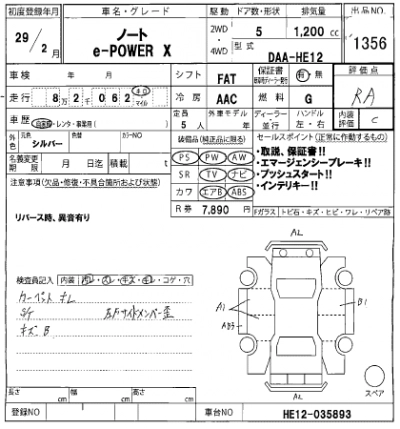 初度登録年月 車名・グレード 駆動 ドア数・形状 排気量 出品NO.
29/2月 ノート 2WD・4WD 5 1,200cc 1356
e-POWER X 型式 DAA-HE12
車検 年 月 シフト FAT 保証書 有・無 評価点
走行 8万2千062 キロ マイル 冷房 AAC 燃料 G RA
車歴 自家用・レンタ・事業用( ) 定員 5人 外車モデル 年 ディーラー・並行 ハンドル 左・右 内装評価 C
外色 元色 シルバー 色替 カラーNO 装備品(純正品に限る) セールスポイント(正常に作動するもの)
名義変更期限 月 日迄 積載 t PS PW AW ・取説、保証書!!
注意事項(欠品・修復・不具合箇所および状態) SR TV ナビ ・エマージェンシーブレーキ!!
カワ エアB ABS ・プッシュスタート!!
・インテリキー!!
リバース時、異音有り R券 7,890円 Fガラス トビ石・キズ・ヒビ・ワレ・リペア跡
AL
検査員記入 内装 コゲ・穴
カーペット キレ
S/T
キズ B
A1
B1
AL
スペア
長さ cm 幅 cm 高さ cm
登録NO 車台NO HE12-035893